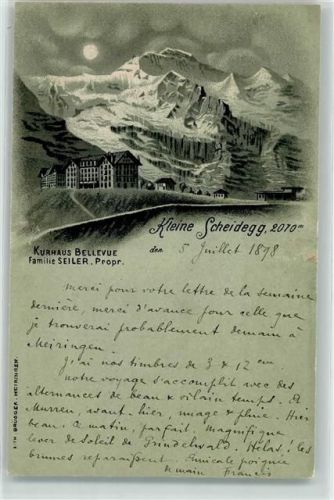 Kleine Scheidegg, 2070 m
KURHAUS BELLEVUE
Familie SEILER, Propr.
den 5 Juillet 1898
Merci pour votre lettre de la semaine
dernière, merci d'avance pour celle que
je trouverai probablement demain à
Meiringen.
J'ai nos timbres de 3 & 12 cm
notre voyage s'accomplit avec des
alternances de beau & vilain temps. A
Murren, avant-hier, nuage & pluie. Hier
beau. Ce matin, parfait. Magnifique
lever de soleil de Grindelwald. Hélas! les
brumes reparaissent. Amicale poignée
main Francis
LITH. BRÜGGER, MEIRINGEN.